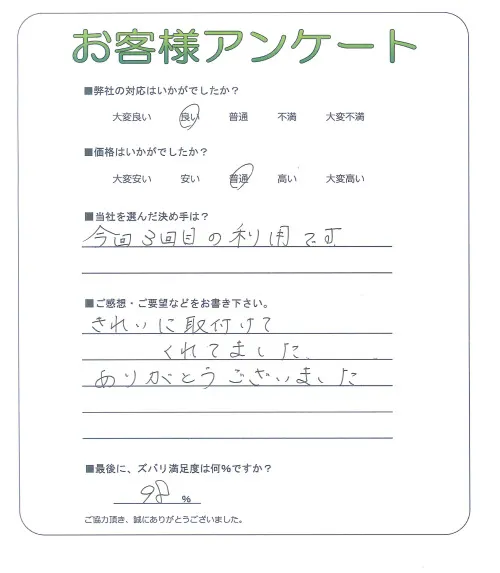 お客様アンケート
■弊社の対応はいかがでしたか？
大変良い 良い 普通 不満 大変不満
■価格はいかがでしたか？
大変安い 安い 普通 高い 大変高い
■当社を選んだ決め手は？
今回3回目の利用です
■ご感想・ご要望などをお書き下さい。
きれいに取付けて
くれてました
ありがとうございました
■最後に、ズバリ満足度は何%ですか？
98 %
ご協力頂き、誠にありがとうございました。